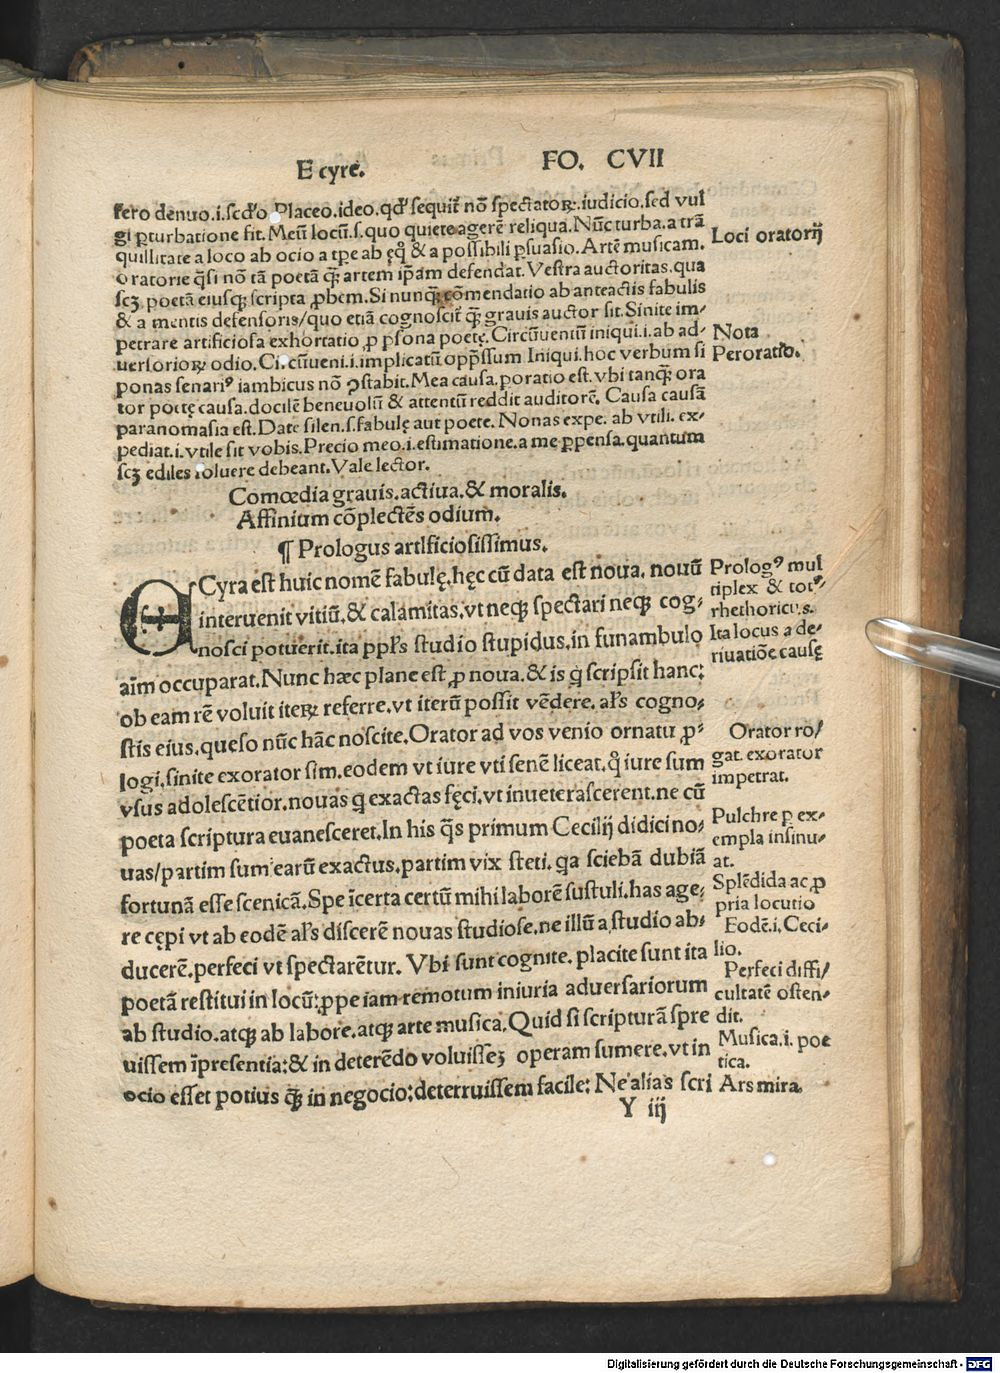 Ecyrę. FO. CVII
fero denuo.i.sedꝰo Placeo.ideo.qd' sequit̃ nō spectatoꝝ.iudicio.sed vul
gi ꝑturbatione fit. Meū locū.s.quo quiete agerē reliqua. Nūc turba.a trā
quillitate a loco ab ocio a tꝑe ab ęq̃ & a possibili ꝑsuasio. Artē musicam.
oratorie q̃si nō tā poetā ꝙ̃ artem ip̄am defendat. Vestra auctoritas.qua
scꝫ poetā eiusqꝫ scripta ꝓbem. Si nunqꝫ cōmendatio ab anteactis fabulis
& a mentis defensoris/quo etiā cognoscit̃ ꝙ̃ grauis auctor sit. Sinite im-
petrare artificiosa exhortatio ꝓ ꝑsona poetę. Circūuentū iniqui.i.ab ad-
uersorioꝝ odio. Ci cūueni.i.implicatū opp̄ssum Iniqui.hoc verbum si
ponas senariꝰ iambicus nō ꝯstabit. Mea causa.ꝑoratio est.vbi tanqꝫ ora
tor poetę causa.docilē beneuolū & attentū reddit auditorē. Causa causā
paranomasia est. Date silen.s.fabulę aut poete. Nonas expe. ab vtili. ex-
pediat.i.vtile sit vobis. Precio meo.i.estimatione.a me ꝑpensa.quantum
scꝫ ediles soluere debeant. Vale lector.
Loci oratorij
Nota
Peroratio.
Comœdia grauis.actiua.& moralis.
Affinium cōplectēs odium.
¶ Prologus artificiosissimus.
ECyra est huic nomē fabulę.hęc cū data est noua. nouū
interuenit vitiū.& calamitas.vt neqꝫ spectari neqꝫ cog-
nosci potuerit.ita ppl's studio stupidus.in funambulo
aīm occuparat. Nunc hæc plane est ꝓ noua.& is q̇ scripsit hanc:
ob eam rē voluit iteꝝ referre.vt iterū possit vēdere. al's cogno-
stis eius.queso nūc hāc noscite. Orator ad vos venio ornatu ꝓ-
logi.sinite exorator sim.eodem vt iure vti senē liceat.q̊ iure sum
vsus adolescētior.nouas q̇ exactas fęci.vt inueterascerent.ne cū
poeta scriptura euanesceret. In his q̃s primum Cecilij didici no-
uas/partim sum earū exactus.partim vix steti. qa sciebā dubiā
fortunā esse scenicā. Spe īcerta certū mihi laborē sustuli.has age-
re cępi vt ab eodē al's discerē nouas studiose.ne illū a studio ab-
ducerē.perfeci vt spectarētur. Vbi sunt cognite. placite sunt ita
poetā restitui in locū:ꝓpe iam remotum iniuria aduersariorum
ab studio.atqꝫ ab labore.atqꝫ arte musica. Quid si scripturā spre
uissem īpresentia:& in deterēdo voluisseꝫ operam sumere.vt in
ocio esset potius ꝙ̃ in negocio:deterruissem facile: Ne alias scri
Prologꝰ mul
tiplex & totꝰ-
rhethoricus.
Ita locus a de-
riuatiōe causę
Orator ro/
gat. exorator
impetrat.
Pulchre ꝑ ex-
empla insinu-
at.
Splēdida ac ꝓ
pria locutio
Eodē.i.Ceci-
lio.
Perfeci diffi/
cultatē osten-
dit.
Musica.i. poe
tica.
Ars mira.
Y iij
Digitalisierung gefördert durch die Deutsche Forschungsgemeinschaft - DFG